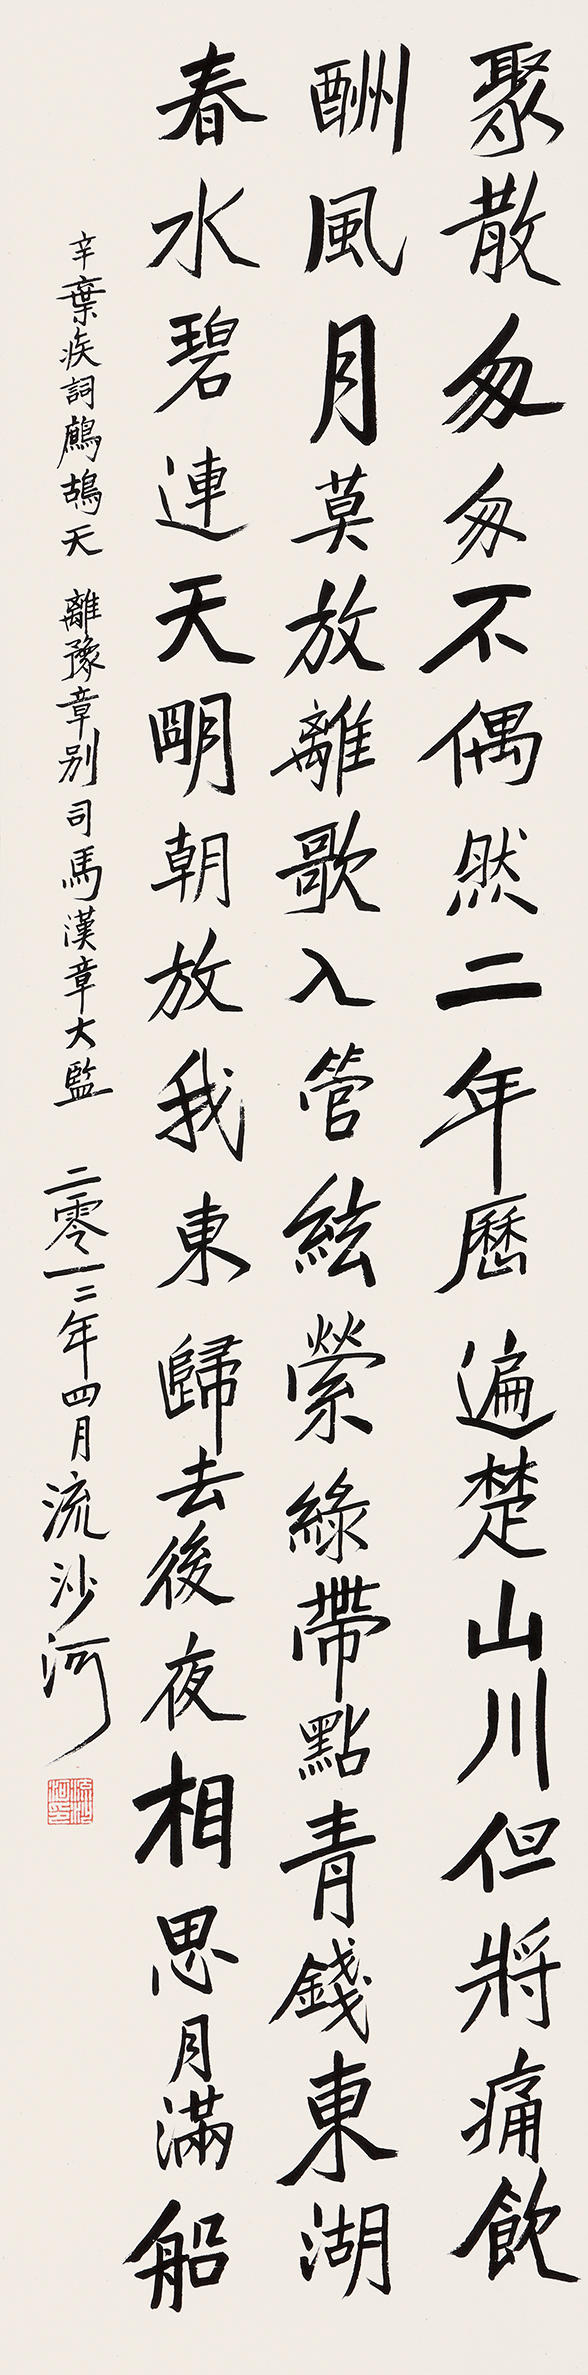 聚散匆匆不偶然二年歷遍楚山川但將痛飲
酬風月莫放離歌入管絃縈綠帶點青錢東湖
春水碧連天朙朝放我東歸去後夜相思月滿船
辛棄疾詞鷓鴣天 離豫章别司馬漢章大監 二零一二年四月流沙河
流沙河印